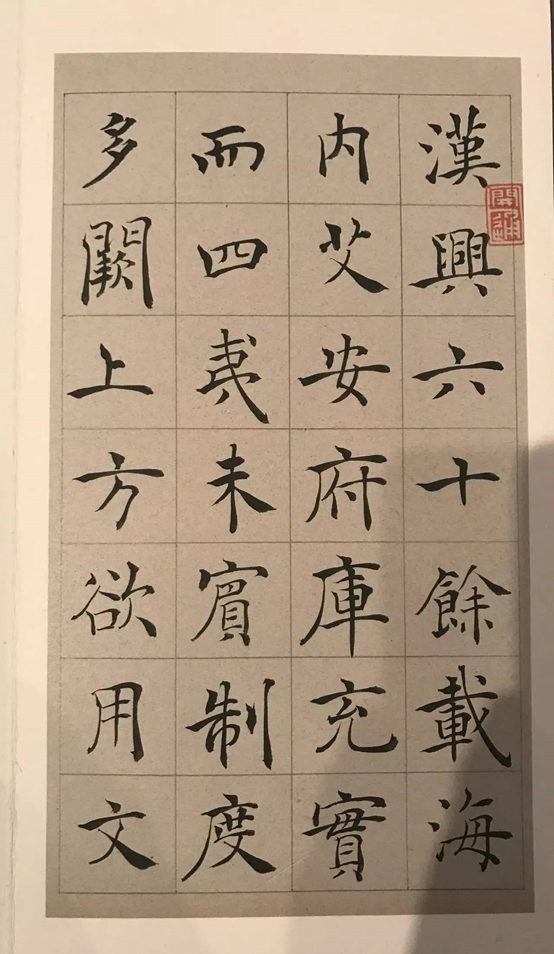 漢興六十餘載海
内艾安府庫充實
而四夷未賓制度
多闕上方欲用文
開通